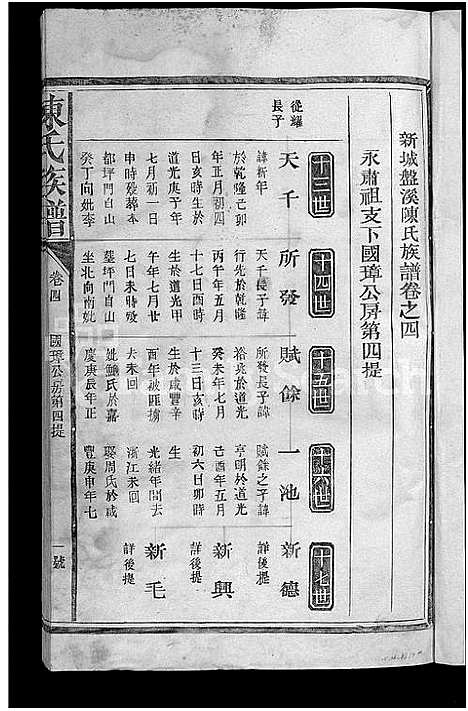 新城盤溪陳氏族譜卷之四
永肅祖支下國璋公房第四提
十三世
十四世
十五世
十六世
十七世
從耀
長子
天千
所發
賦餘
一池
新德
諱新年
天千長子諱
所發長子諱
賦餘之子諱
詳後提
於乾隆己卯
行先於乾隆
裕兵於道光
亨明於道光
年正月初四
丙午年五月
癸未年七月
己酉年五月
新興
日亥時生於
十七日酉時
十三日亥時
初六日卯時
詳後提
道光庚子年
生於道光甲
生於咸豐辛
生
七月初一日
午年七月廿
酉年被匪擄
光緒年間去
新毛
申時殁葬本
七日未時殁
去未回
浙江未回
詳後提
都坪門白山
葬坪門白山
妣鮑氏於嘉
娶周氏於咸
癸丁向妣李
坐北向南妣
慶庚辰年正
豐庚申年七
陳氏族譜
卷四
國璋公房第四提
一號